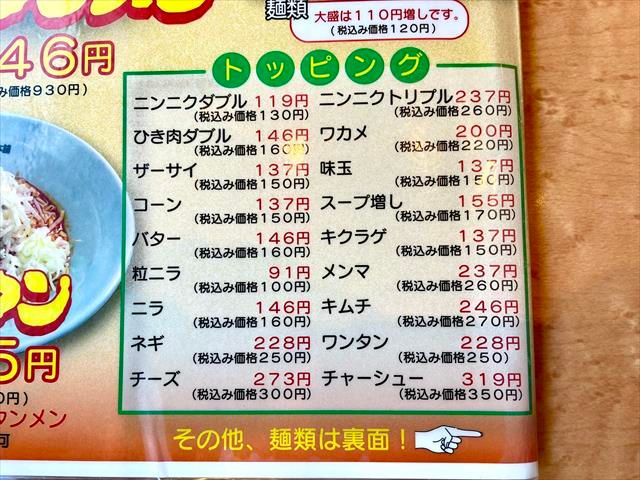 麺類
大盛は110円増しです。
(税込み価格120円)
46円
み価格930円)
トッピング
ニンニクダブル 119円
(税込み価格130円)
ニンニクトリプル 237円
(税込み価格260円)
ひき肉ダブル 146円
(税込み価格160円)
ワカメ 200円
(税込み価格220円)
ザーサイ 137円
(税込み価格150円)
味玉 137円
(税込み価格150円)
コーン 137円
(税込み価格150円)
スープ増し 155円
(税込み価格170円)
バター 146円
(税込み価格160円)
キクラゲ 137円
(税込み価格150円)
粒ニラ 91円
(税込み価格100円)
メンマ 237円
(税込み価格260円)
ニラ 146円
(税込み価格160円)
キムチ 246円
(税込み価格270円)
ネギ 228円
(税込み価格250円)
ワンタン 228円
(税込み価格250)
チーズ 273円
(税込み価格300円)
チャーシュー 319円
(税込み価格350円)
タン
5円
0円)
タンメン
可
その他、麺類は裏面!